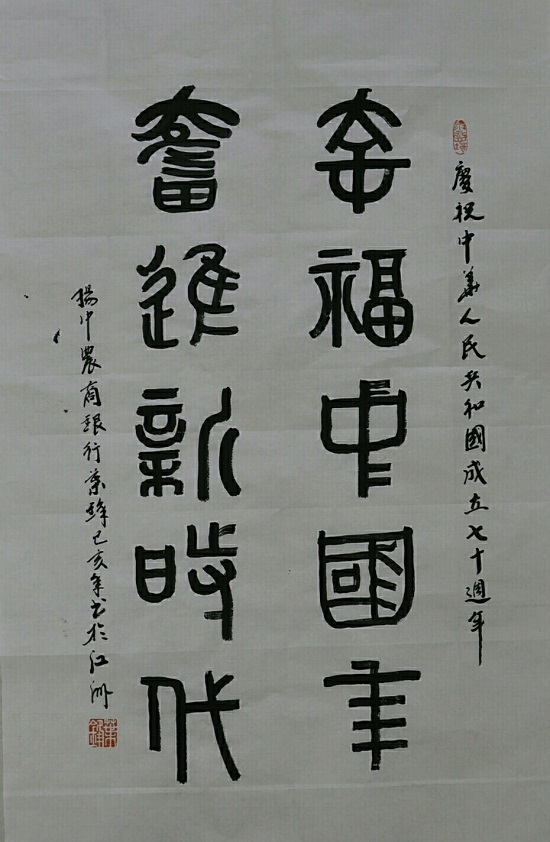 慶祝中華人民共和國成立七十週年
幸福中國年
奮進新時代
揚中農商銀行葉己亥年書於江洲